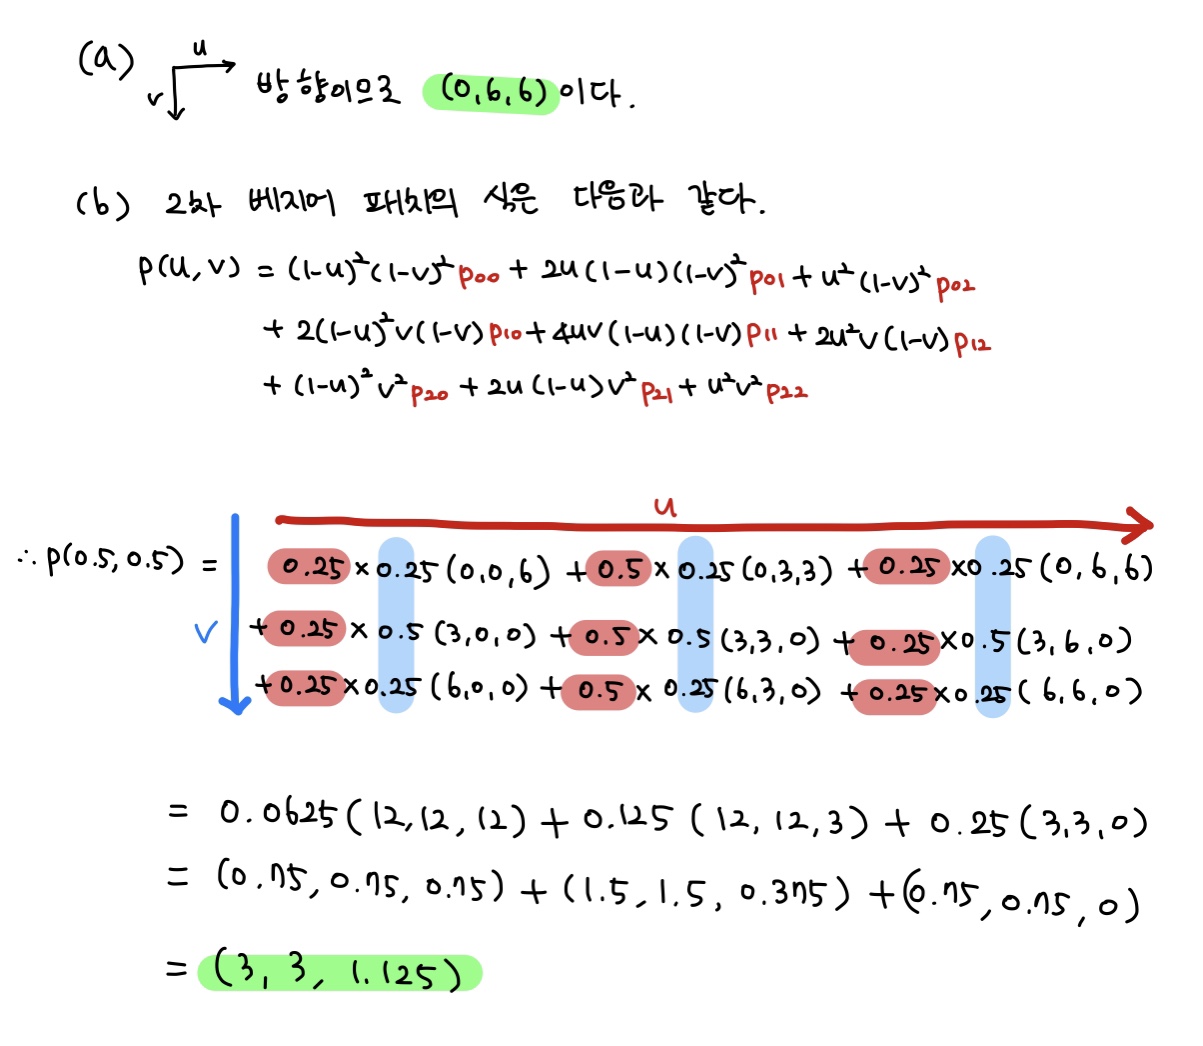 (a) u v 방향이므로 (0,6,6)이다.
(b) 2차 베지어 패치의 식은 다음과 같다.
p(u,v) = (1-u)²(1-v)²p00 + 2u(1-u)(1-v)²p01 + u²(1-v)²p02
+ 2(1-u)²v(1-v)p10 + 4uv(1-u)(1-v)p11 + 2u²v(1-v)p12
+ (1-u)²v²p20 + 2u(1-u)v²p21 + u²v²p22
u
∴ p(0.5,0.5) = 0.25×0.25(0,0,6) + 0.5×0.25(0,3,3) + 0.25×0.25(0,6,6)
v + 0.25×0.5(3,0,0) + 0.5×0.5(3,3,0) + 0.25×0.5(3,6,0)
+ 0.25×0.25(6,0,0) + 0.5×0.25(6,3,0) + 0.25×0.25(6,6,0)
= 0.0625(12,12,12) + 0.125(12,12,3) + 0.25(3,3,0)
= (0.75,0.75,0.75) + (1.5,1.5,0.375) + (0.75,0.75,0)
= (3,3,1.125)